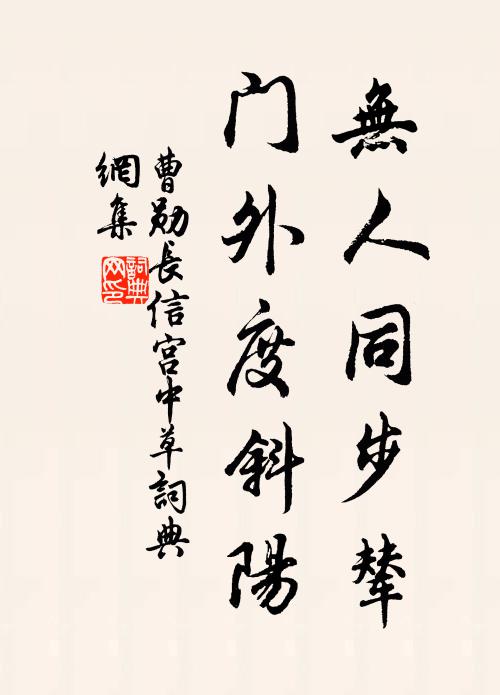 無人同步輦
门外度斜陽
曹勛長信宮中草詞典
網集
詞典网印